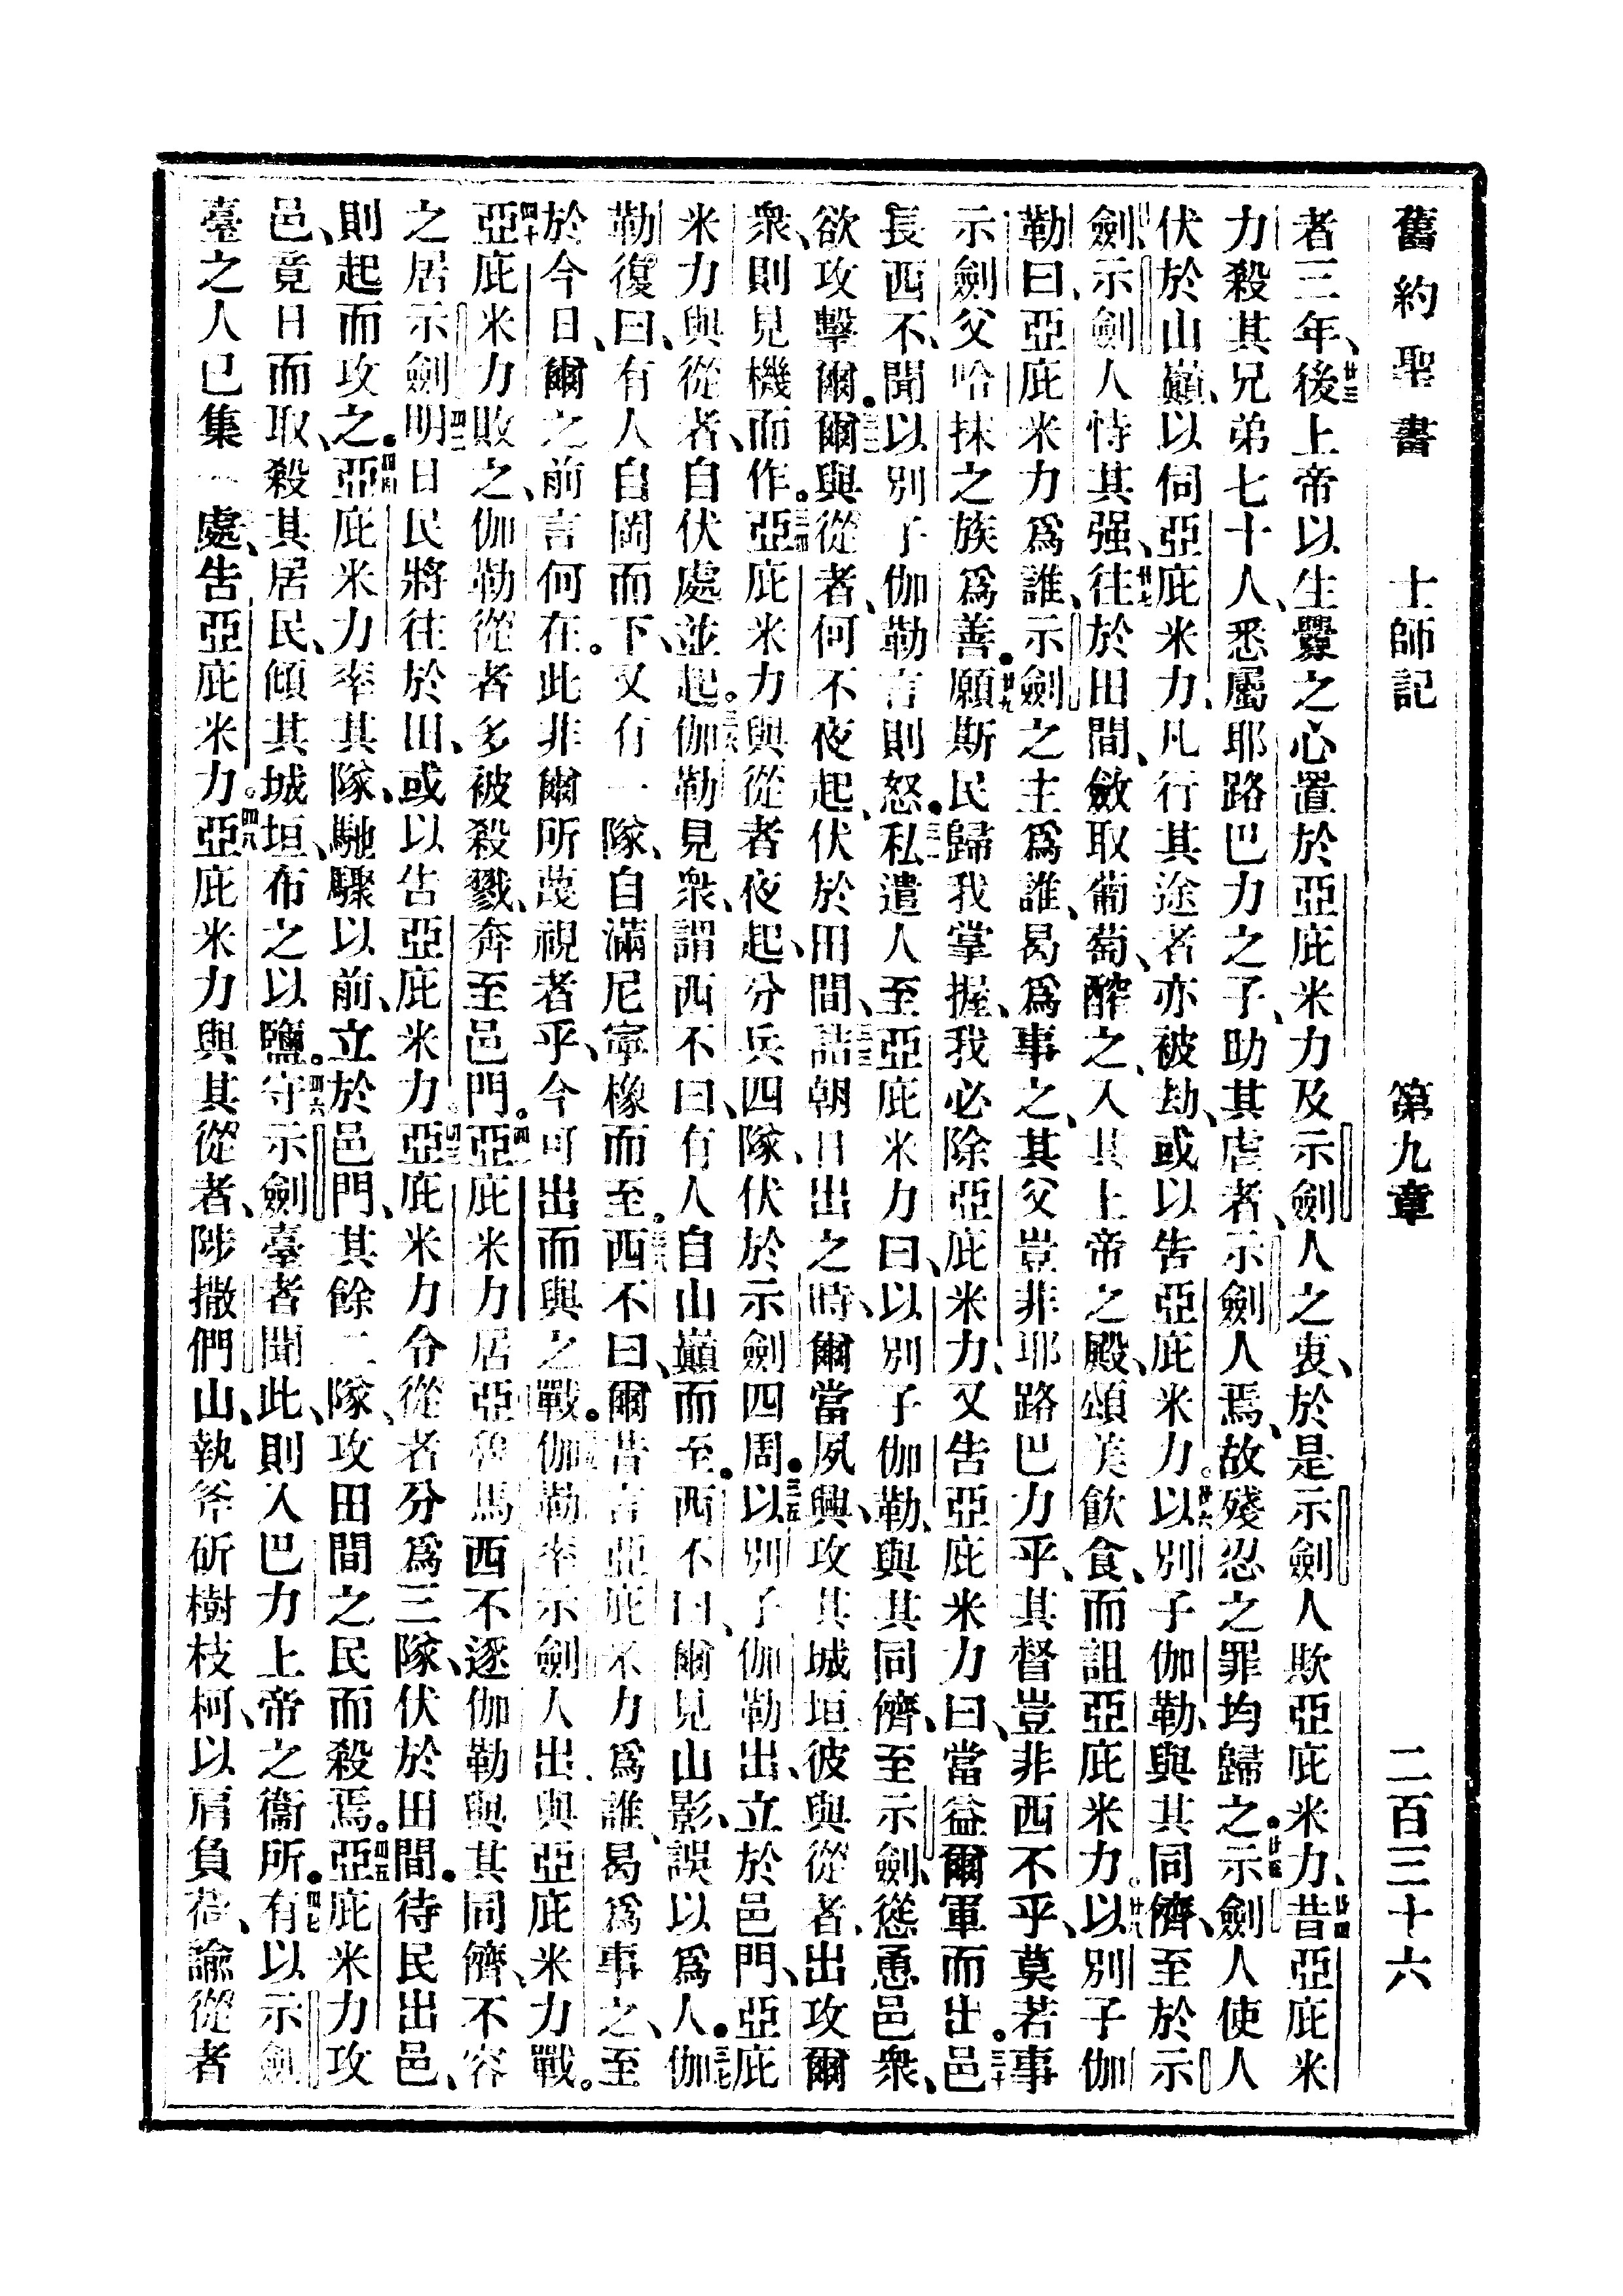 舊約聖書　士師記　第九章　二百三十六
者三年、廿三後上帝以生釁之心置於亞庇米力及示劍人之衷、於是示劍人欺亞庇米力、廿四昔亞庇米
力殺其兄弟七十人、悉屬耶路巴力之子、助其虐者、示劍人焉、故殘忍之罪均歸之。廿五示劍人使人
伏於山巔、以伺亞庇米力、凡行其途者、亦被劫、或以告亞庇米力。廿六以別子伽勒、與其同儕、至於示
劍、示劍人恃其强、廿七往於田間、斂取葡萄、醡之、入其上帝之殿、頌美飲食、而詛亞庇米力。廿八以別子伽
勒曰、亞庇米力為誰、示劍之主為誰、曷為事之、其父豈非耶路巴力乎、其督豈非西不乎、莫若事
示劍父哈抹之族為善。廿九願斯民歸我掌握、我必除亞庇米力、又告亞庇米力曰、當益爾軍而出。三十邑
長西不、聞以別子伽勒言則怒。三一私遣人至亞庇米力曰、以別子伽勒、與其同儕、至示劍、慫恿邑衆、
欲攻擊爾。三二爾與從者、何不夜起、伏於田間、三三詰朝日出之時、爾當夙興、攻其城垣、彼與從者、出攻爾
衆、則見機而作。三四亞庇米力與從者夜起、分兵四隊、伏於示劍四周。三五以別子伽勒出、立於邑門、亞庇
米力與從者、自伏處並起。三六伽勒見衆、謂西不曰、有人自山巔而至。西不曰、爾見山影、誤以為人。三七伽
勒復曰、有人自岡而下、又有一隊、自滿尼寧橡而至。三八西不曰、爾昔言亞庇米力為誰、曷為事之、至
於今日、爾之前言何在。此非爾所蔑視者乎、今可出而與之戰。三九伽勒率示劍人出、與亞庇米力戰。
四十亞庇米力敗之、伽勒從者多被殺戮、奔至邑門。四一亞庇米力居亞魯馬、西不逐伽勒與其同儕、不容
之居示劍。四二明日民將往於田、或以告亞庇米力。四三亞庇米力令從者分為三隊、伏於田間。待民出邑、
則起而攻之。四四亞庇米力率其隊、馳驟以前、立於邑門、其餘二隊、攻田間之民而殺焉。四五亞庇米力攻
邑、竟日而取、殺其居民、傾其城垣、布之以鹽。四六守示劍臺者聞此、則入巴力上帝之衞所。四七有以示劍
臺之人已集一處、告亞庇米力。四八亞庇米力與其從者、陟撒們山、執斧斫樹枝柯、以肩負荷、諭從者